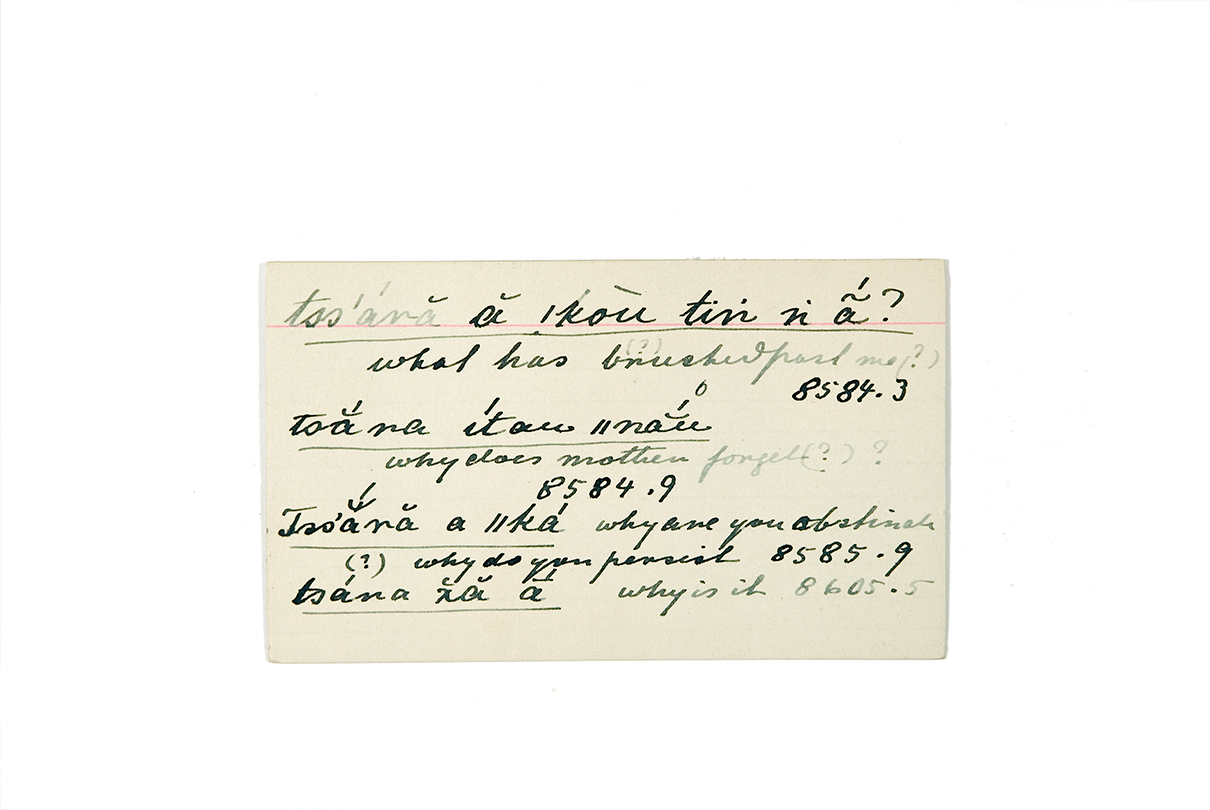 tss'áră ă ǀkōù tiń ń ã́?
what has brushed past me (?)
(?)
8584.3
tsắra ítau ǁnắu
why does mother forget (?) ?
8584.9
Tss'ắră a ǁká why are you obstinate
(?) why do you persist 8585.9
tsára x̆ă ā́ why is it 8605.5